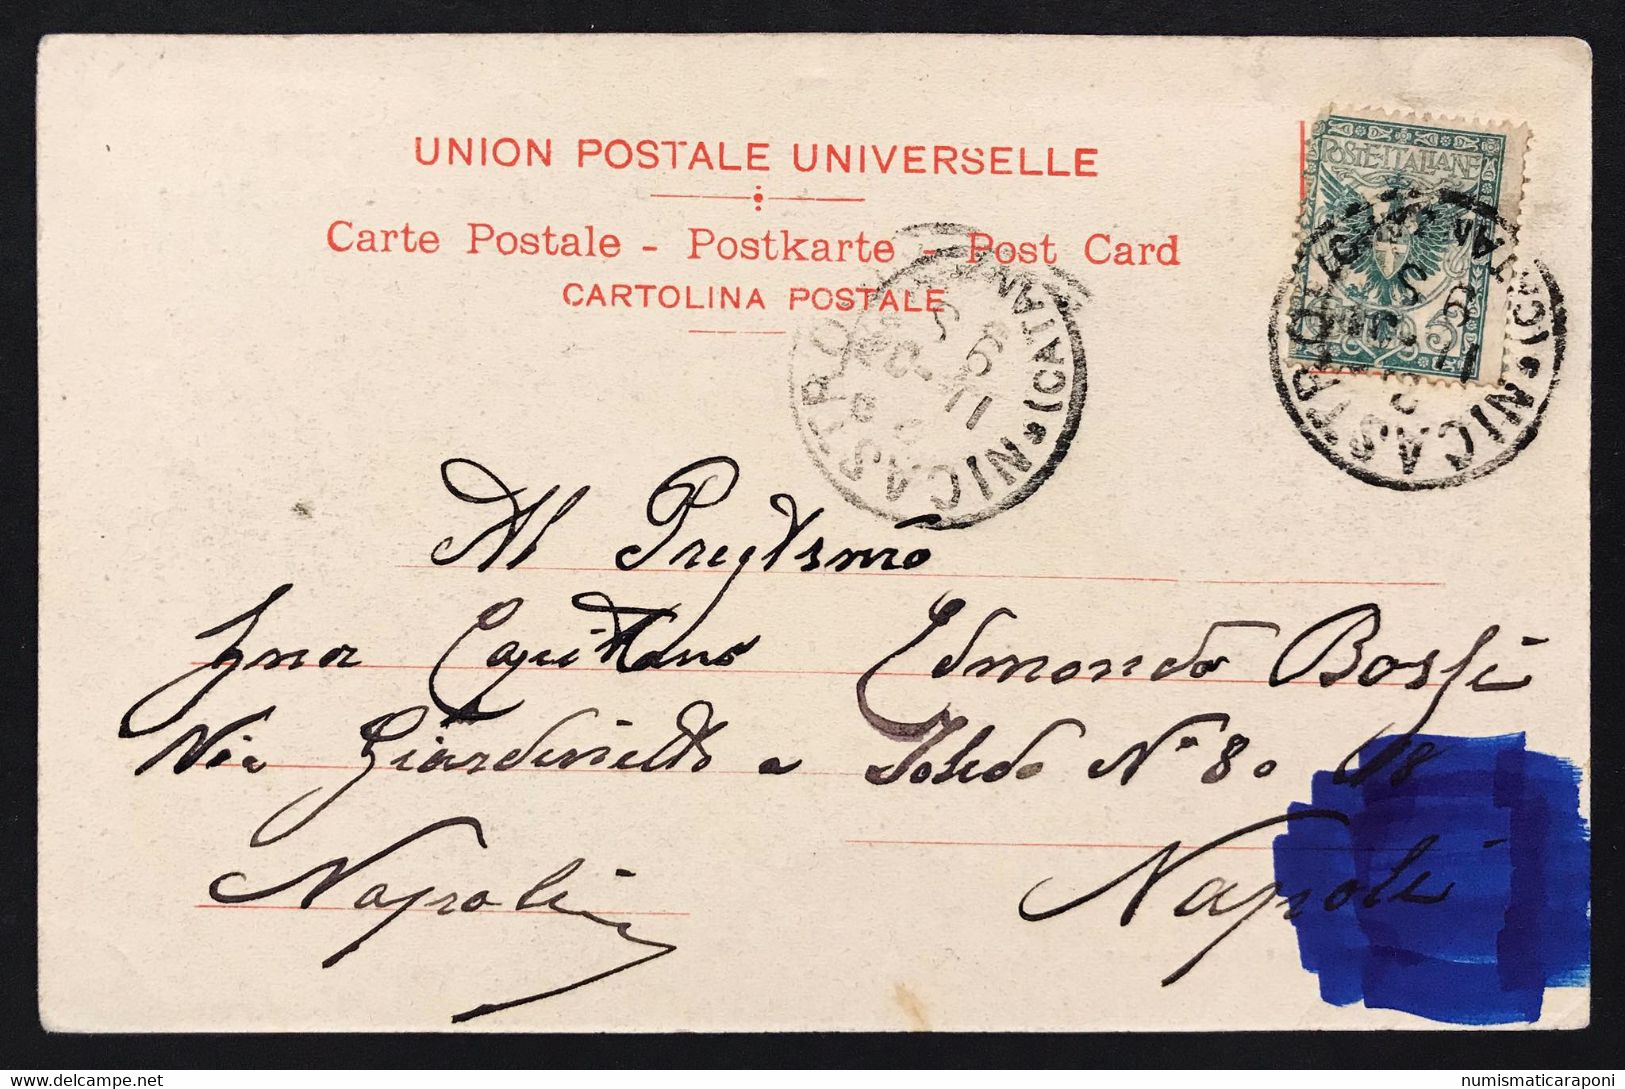 UNION POSTALE UNIVERSELLE
Carte Postale - Postkarte - Post Card
CARTOLINA POSTALE
POSTE ITALIANE
NICASTRO (CATANZ
NICASTRO (CATANZ
Al Pregtsmo
Capittano Edmondo Bossi
Via Giardinietto a Toledo Nº 80
Napoli Napoli
www.delcampe.net
numismaticaraponi